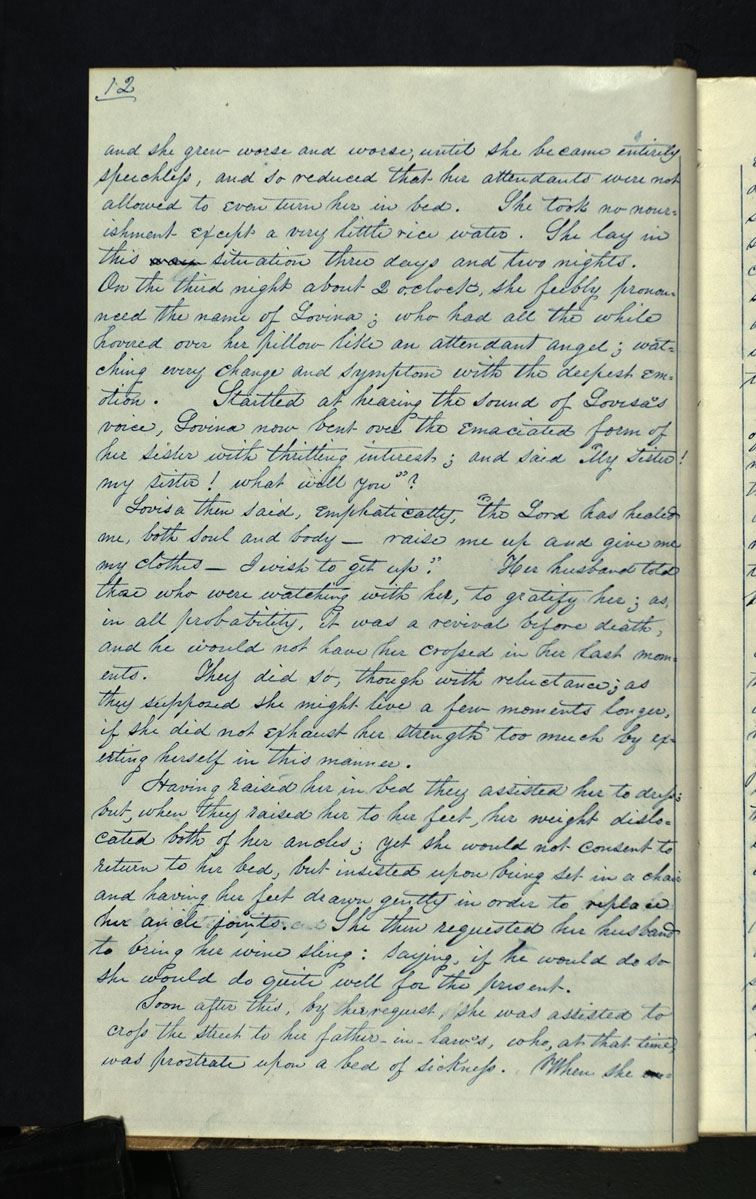 12
and she grew worse and worse, until she became entirely
speechless, and so reduced that her attendants were not
allowed to even turn her in bed. She took no nour=
ishment except a very little rice water. She lay in
this situation three days and two nights.
On the third night about 2 oclock, she feebly pronou=
nced the name of Lovina; who had all the while
hovered over her pillow like an attendant angel; wat=
ching every change and symptom with the deepest em=
otion. Startled at hearing the sound of Lovisa's
voice, Lovina now bent over the emaciated form of
her sister with thrilling interest; and said "My sister!
my sister! what will you"?
Lovisa then said, emphatically, "the Lord has healed
me, both soul and body— raise me up and give me
my clothes— I wish to get up." Her husband told
those who were watching with her, to gratify her; as,
in all probability, it was a revival before death;
and he would not have her crossed in her last mom=
ents. They did so, though with reluctance; as
they supposed she might live a few moments longer,
if she did not exhaust her strength too much by ex=
erting herself in this manner.
Having raised her in bed they assisted her to dress;
but, when they raised her to her feet, her weight dislo=
cated both of her ancles; yet she would not consent to
return to her bed, but insisted upon being set in a chair
and having her feet drawn gently in order to replace
her ancle joints. She then requested her husband
to bring her wine sling: saying, if he would do so
she would do quite well for the present.
Soon after this, by her request, she was assisted to
cross the street to her father-in-law's, who, at that time,
was prostrate upon a bed of sickness. When she